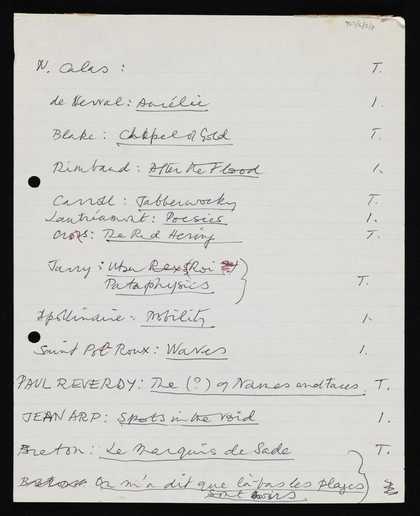 N. Calas : T.
de Nerval : Aurélie 1.
Blake : Chapel of Gold T.
Rimbaud : After the Flood 1.
Carroll : Jabberwocky T.
Lautréamont : Poesies 1.
Cros : The Red Hering T.
Jarry : Ubu Rex Roi
Pataphysics T.
Apollinaire : Mobility 1.
Saint Pol Roux : Waves 1.
PAUL REVERDY : The (?) of Names and taces. T.
JEAN ARP : Spots in the void 1.
Breton : Le Marquis de Sade T.
On m'a dit que là-bas les plages
sont noirs